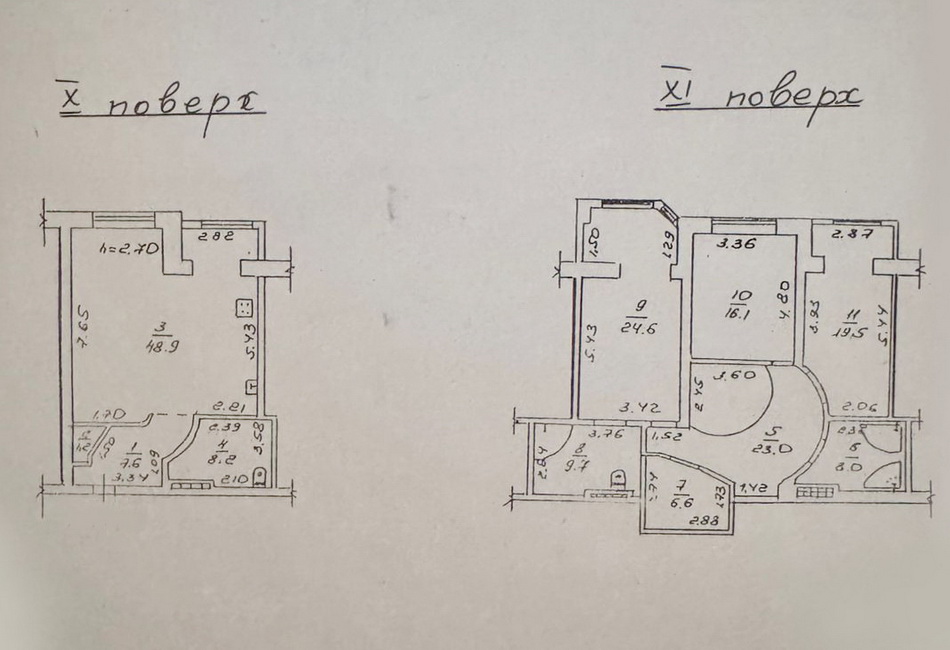 X поверх
XI поверх
2.82
h=2.70
7.65
3
48.9
5.43
1.70
2.21
2.39
3.58
1.50
1
7.6
1.09
4
8.2
3.34
2.10
1.50
1.29
3.36
2.87
9
24.6
10
16.1
4.80
3.95
11
19.5
5.44
5.43
3.42
3.60
2.45
2.06
3.76
1.52
5
23.0
8
9.7
6
8.0
7
6.6
1.73
1.42
2.88